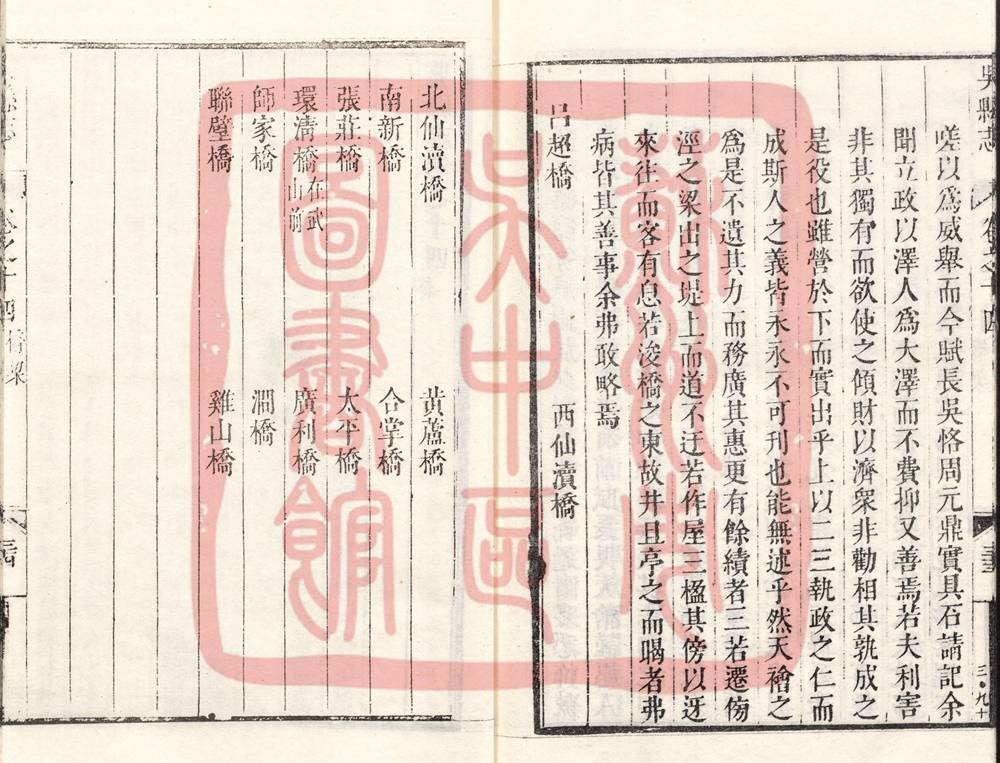 吳縣志
卷之十四
嗟以爲威舉而今賦長吳恪周元鼎實具石請記余
聞立政以澤人爲大澤而不費抑又善焉若夫利害
非其獨有而欲使之傾財以濟衆非勸相其孰成之
是役也雖營於下而實出乎上以二三執政之仁而
成斯人之義皆永永不可刊也能無述乎然天禬之
爲是不遺其力而務廣其惠更有餘績者三若遷傍
涇之梁出之堤上而道不迂若作屋三楹其傍以迓
來往而客有息若浚橋之東故井且亭之而暍者弗
病皆其善事余弗敢略焉
呂超橋
西仙瀆橋
北仙瀆橋
黃蘆橋
南新橋
合掌橋
張莊橋
太平橋
環淸橋在武山前
廣利橋
師家橋
澗橋
聯璧橋
雞山橋
卷之十四橋梁
蘇州市
吳中區
圖書館